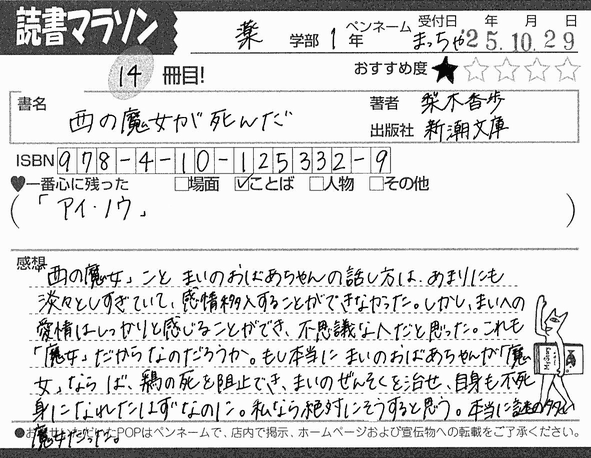 読書マラソン
薬 学部 1 年
ペンネーム まっちゃ
受付日 '25年 10月 29日
14 冊目!
おすすめ度 ★☆☆☆☆
書名 西の魔女が死んだ
著者 梨木香歩
出版社 新潮文庫
ISBN 978-4-10-125332-9
♥一番心に残った □場面 ☑ことば □人物 □その他
(「アイ・ノウ」)
感想
「西の魔女」こと まいのおばあちゃんの話し方は、あまりにも
淡々としすぎていて、感情移入することができなかった。しかし、まいへの
愛情はしっかりと感じることができ、不思議な人だと思った。これも
「魔女」だからなのだろうか。もし本当に まいのおばあちゃんが「魔
女」ならば、鶏の死を阻止でき、まいのぜんそくを治せ、自身も不死
身になれたはずなのに。私なら絶対にそうすると思う。本当に謎の多い
魔女だった。
●お書きいただいたPOPはペンネームで、店内で掲示、ホームページおよび宣伝物への転載をご了承ください。